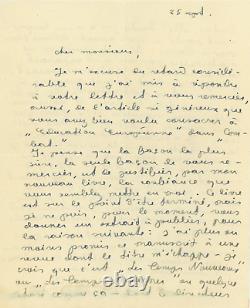 25 sept.
cher monsieur,
Je m'excuse du retard considé-
rable que j'ai mis à répondre
à votre lettre et à vous remercier
aussi, de l'article si généreux que
vous avez bien voulu consacrer à
"Education Européenne" dans "Com-
bat".
Je pense que la façon la plus
sûre, la seule façon de vous re-
mercier, est de justifier, par mon
nouveau livre, la confiance que
vous semblez mettre en moi. Ce livre
est sur le point d'être terminé, mais
je ne puis, pour le moment, vous
donner un extrait à publier, pour
la raison suivante: j'ai plus ou
moins promis ce manuscrit à une
revue dont le titre m'échappe - je
crois que c'est "des Temps Nouveaux"
ou "des Temps", ou quelque
chose comme ça -